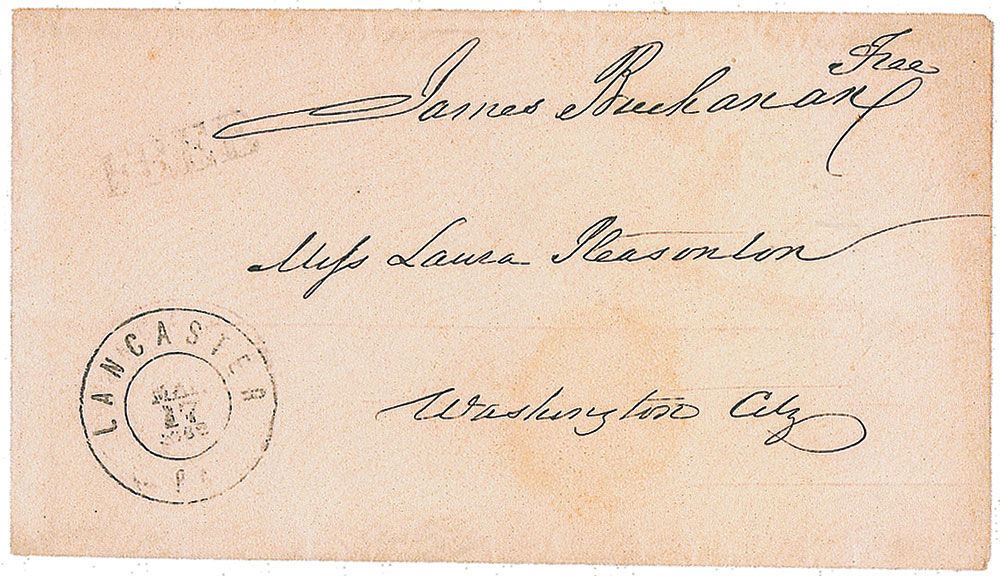 Free
James Buchanan
FREE
Miss Laura Pleasonton
Washington City
LANCASTER
17
Pa